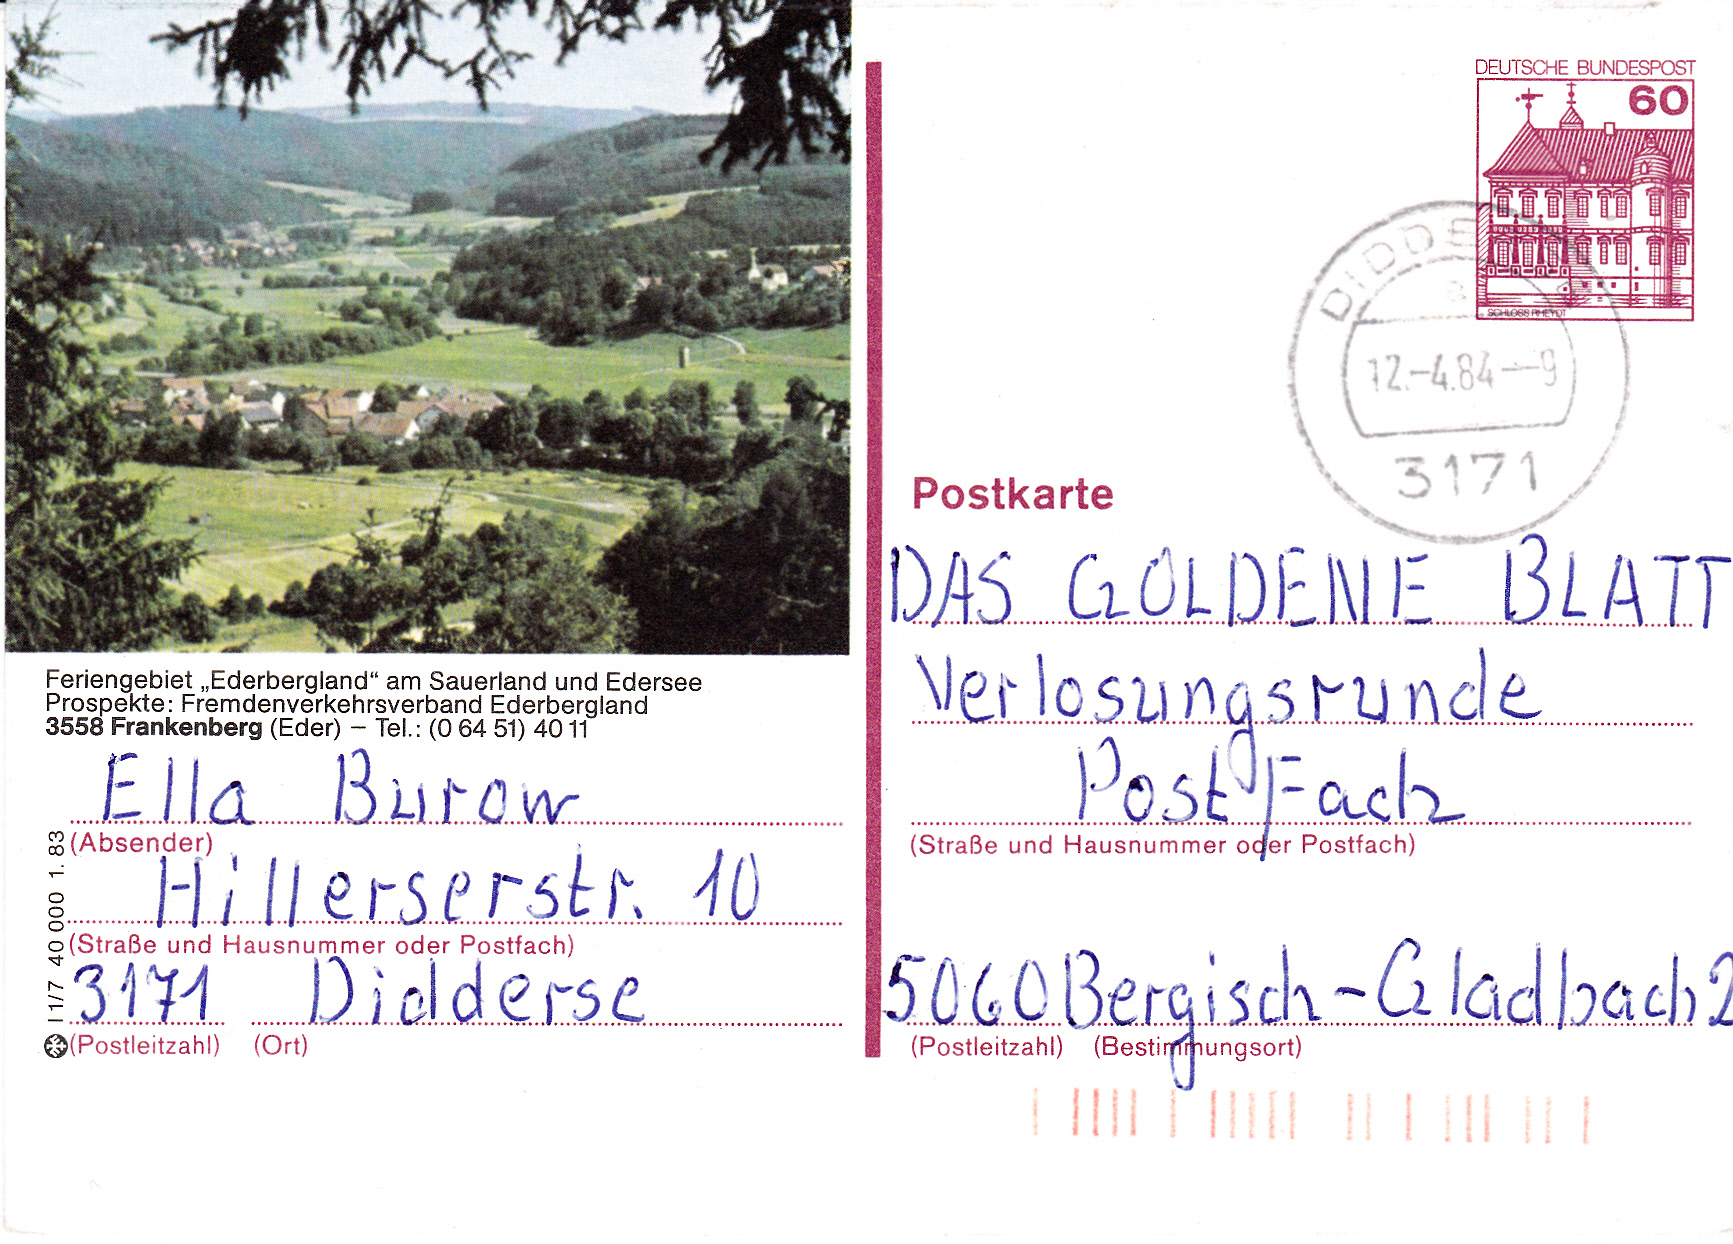 DEUTSCHE BUNDESPOST
60
SCHLOSS RHEYDT
12.-4.84-9
3171
Postkarte
DAS GOLDENE BLATT
Verlosungsrunde
PostFach
(Straße und Hausnummer oder Postfach)
5060 Bergisch-Gladbach 2
(Postleitzahl) (Bestimmungsort)
Feriengebiet „Ederbergland“ am Sauerland und Edersee
Prospekte: Fremdenverkehrsverband Ederbergland
3558 Frankenberg (Eder) – Tel.: (0 64 51) 40 11
Ella Burow
(Absender)
Hillerserstr. 10
(Straße und Hausnummer oder Postfach)
3171 Didderse
(Postleitzahl) (Ort)
I 1/7 40 000 1. 83